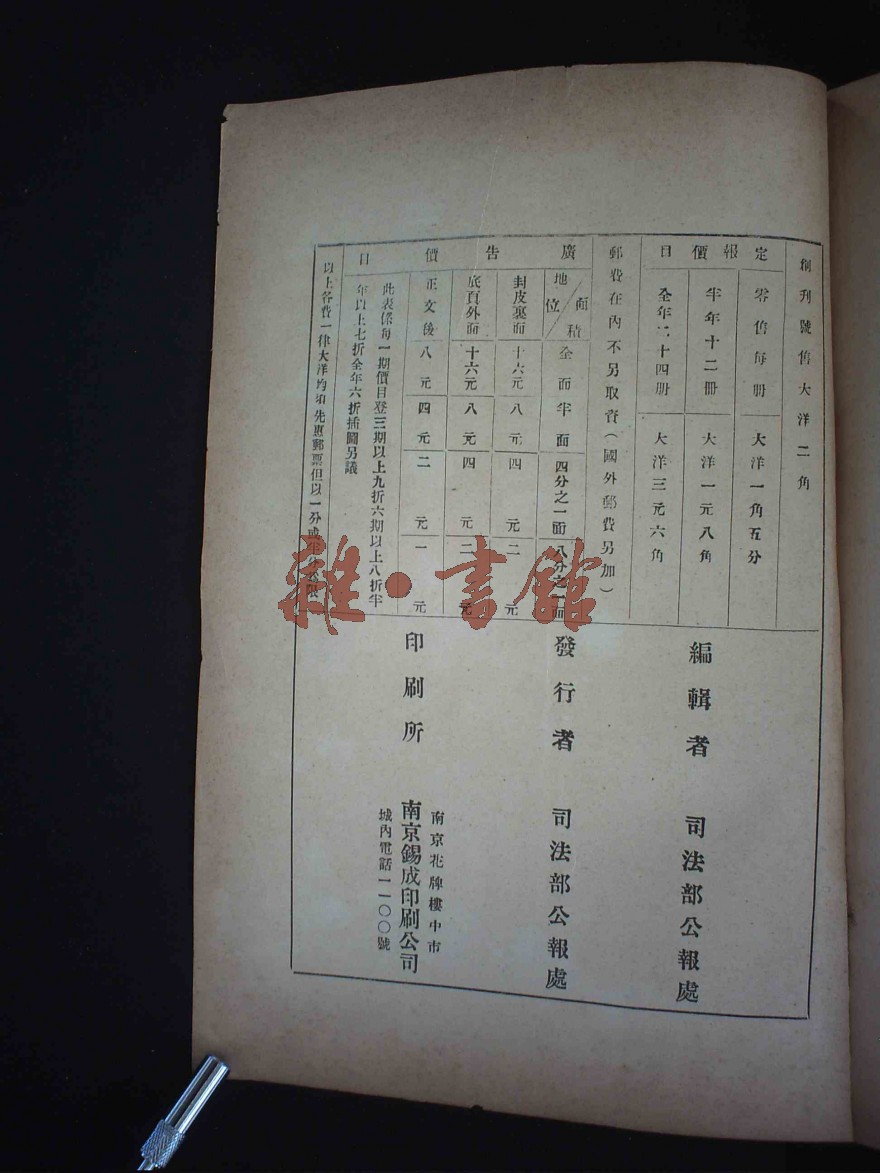 創刊號售大洋二角
定報價目
零售每册 大洋一角五分
半年十二冊 大洋一元八角
全年二十四册 大洋三元六角
郵費在內不另取資（國外郵費另加）
廣告價目
面積 地位 全面 半面 四分之一面 八分之一面
封皮裏面 十六元 八元 四元 二元
底頁外面 十六元 八元 四元 二元
正文後 八元 四元 二元 一元
此表係每一期價目登三期以上九折六期以上八折半
年以上七折全年六折插圖另議
以上各費一律大洋均須先惠郵票但以一分或半分爲限
編輯者 司法部公報處
發行者 司法部公報處
印刷所
南京花牌樓中市
南京錫成印刷公司
城內電話一一〇〇號
雜·書館